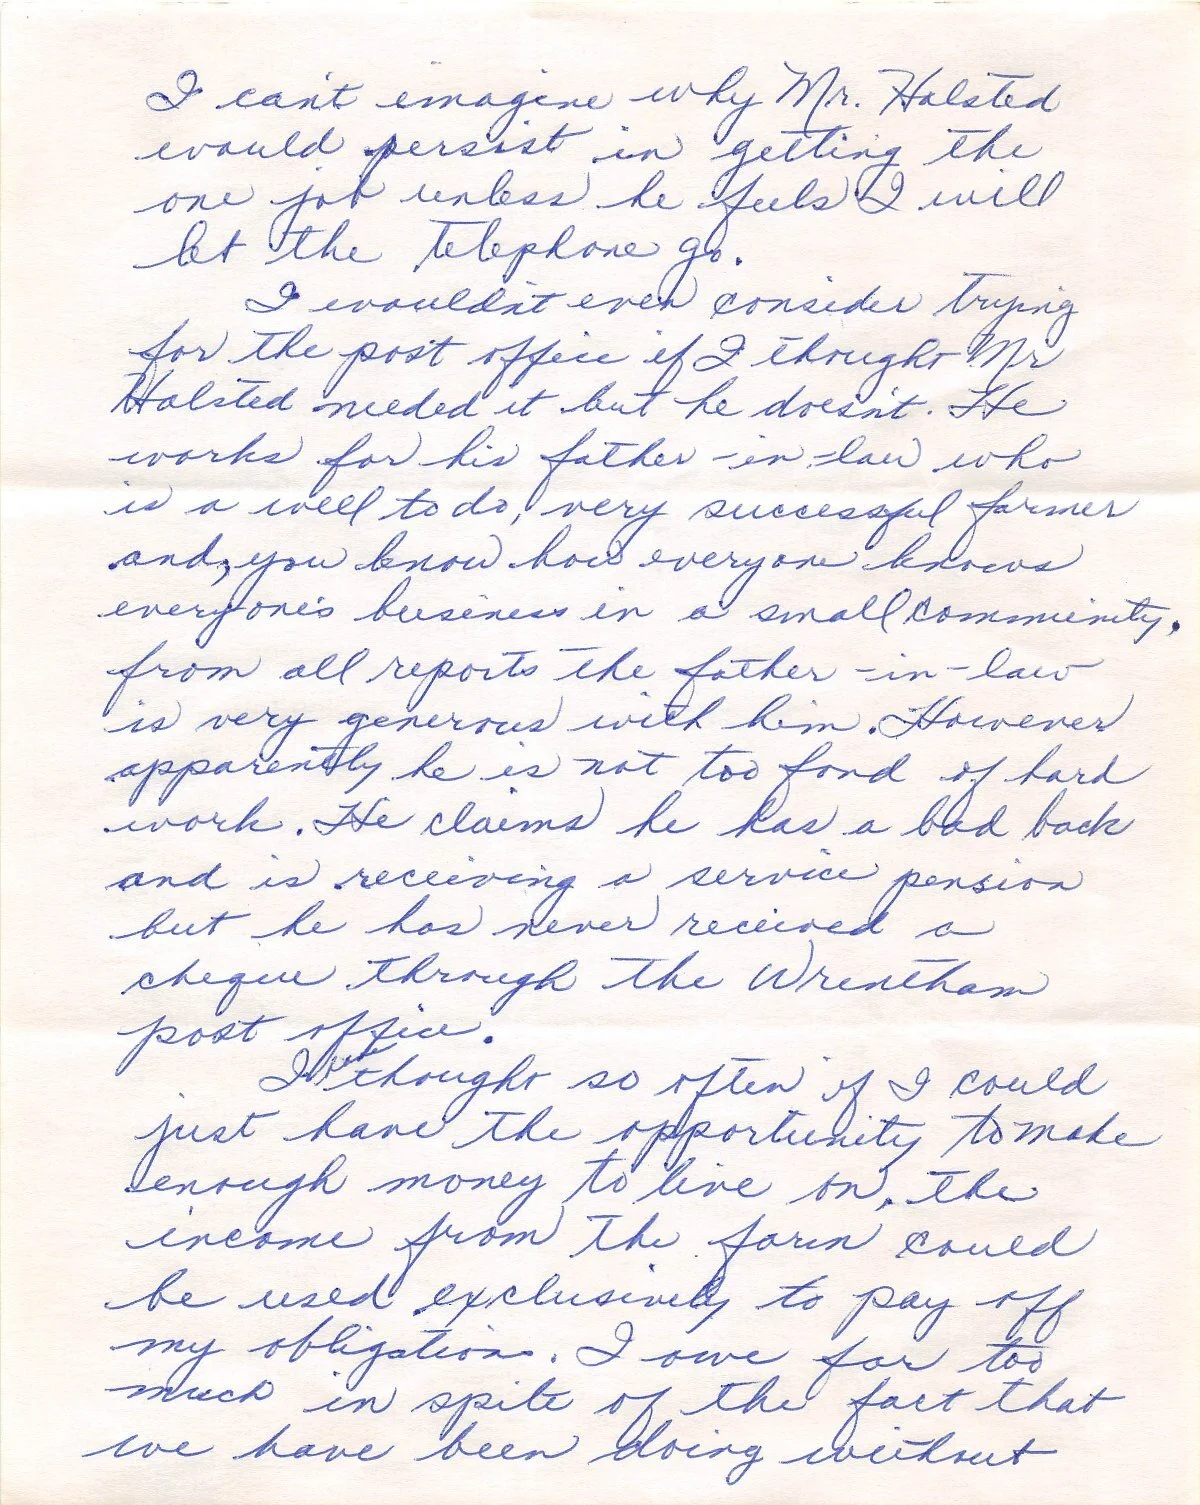 I can't imagine why Mr. Halsted
would persist in getting the
one job unless he feels I will
let the telephone go.
I wouldn't even consider trying
for the post office if I thought Mr
Halsted needed it but he doesn't. He
works for his father-in-law who
is a well to do, very successful farmer
and, you know how everyone knows
everyone's business in a small community,
from all reports the father-in-law
is very generous with him. However
apparently he is not too fond of hard
work. He claims he has a bad back
and is receiving a service pension
but he has never received a
cheque through the Wrentham
post office.
I've thought so often if I could
just have the opportunity to make
enough money to live on, the
income from the farm could
be used exclusively to pay off
my obligations. I owe far too
much in spite of the fact that
we have been doing without